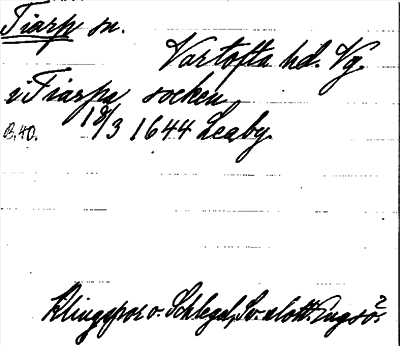 Tiarp sn.
Vartofta hd. Vg.
i Tiarpa socken
18/3 1644 Leaby.
B. 40.
Klingspor o. Schlegel, Sv. slott. Engsö 2.